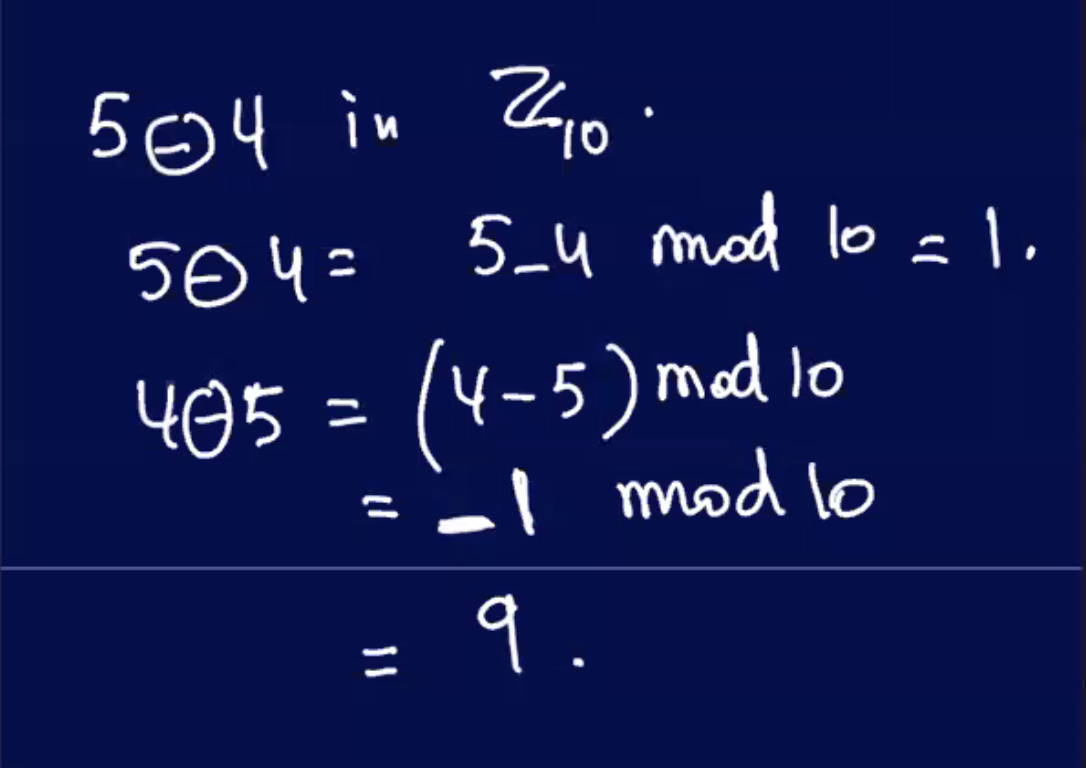 5 ⊖ 4 in ℤ₁₀.
5 ⊖ 4 = 5 - 4 mod 10 = 1.
4 ⊖ 5 = (4 - 5) mod 10
= -1 mod 10
= 9.